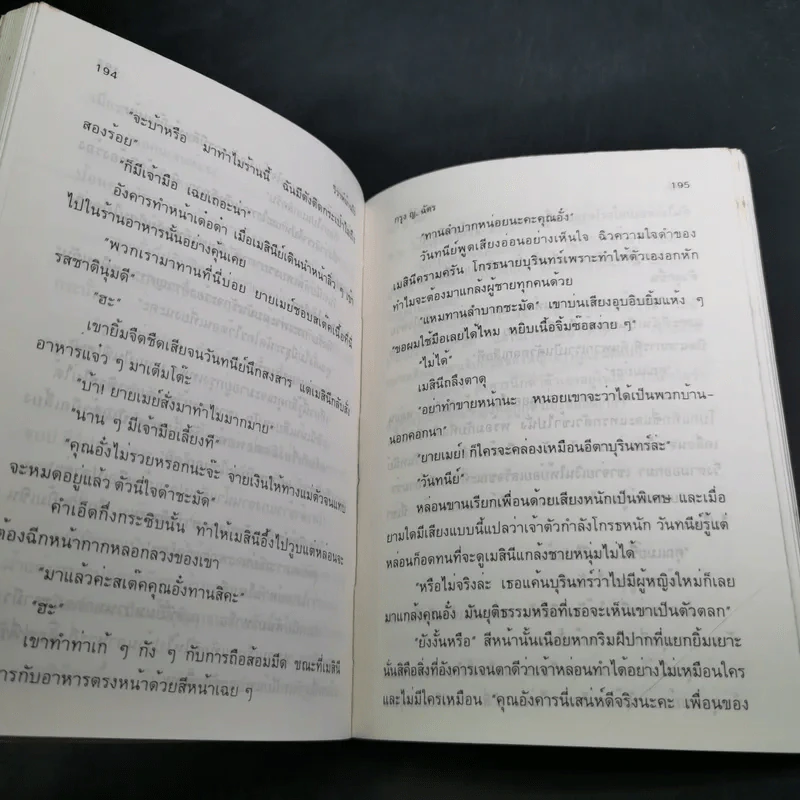 194
"จะบ้าหรือ มาทำไมร้านนี้ ฉันมีตังติดกระเป๋าไม่ถึง
สองร้อย"
"ก็มีเจ้ามือ เฉยเถอะน่า"
อังคารทำหน้าเด๋อด๋า เมื่อเมสินีย์เดินนำหน้าลิ่ว ๆ เข้า
ไปในร้านอาหารนั้นอย่างคุ้นเคย
"พวกเรามาทานที่นี่บ่อย ยายเมย์ชอบสเต๊คเนื้อที่นี่
รสชาติน่มดี"
"ฮะ"
เขายิ้มจืดชืดเสียจนวันทนีย์นึกสงสาร แต่เมสินีกลับสั่ง
อาหารแจ๋ว ๆ มาเต็มโต๊ะ
"บ้า! ยายเมย์สั่งมาทำไมมากมาย"
"นาน ๆ มีเจ้ามือเลี้ยงที"
"คุณอั๋งไม่รวยหรอกนะจ๊ะ จ่ายเงินให้ทางแม่ตัวจนแทบ
จะหมดอยู่แล้ว ตัวนี่ใจดำชะมัด"
คำเอ็ดกึ่งกระซิบนั้น ทำให้เมสินีอึ้งไปวูบแต่หล่อนจะ
ต้องฉีกหน้ากากหลอกลวงของเขา
"มาแล้วค่ะสเต๊คคุณอั๋งทานสิคะ"
"ฮะ"
เขาทำท่าเก้ ๆ กัง ๆ กับการถือส้อมมีด ขณะที่เมสินี
การกับอาหารตรงหน้าด้วยสีหน้าเฉย ๆ
กรุง ญ. ฉัตร
195
"ทานลำบากหน่อยนะคะคุณอั๋ง"
วันทนีย์พูดเสียงอ่อนอย่างเห็นใจ ฉิวความใจดำของ
เมสินีครามครัน โกรธนายบุรินทร์เพราะทำให้ตัวเองอกหัก
ทำไมจะต้องมาแกล้งผู้ชายทุกคนด้วย
"แหมทานลำบากชะมัด" เขาบ่นเสียงอุบอิบยิ้มแห้ง ๆ
"ขอผมใช้มือเลยได้ไหม หยิบเนื้อจิ้มซ๊อสง่าย ๆ"
"ไม่ได้"
เมสินีถลึงตาดุ
"อย่าทำขายหน้านะ หนอยเขาจะว่าได้เป็นพวกบ้าน-
นอกคอกนา"
"ยายเมย์! ก็ใครจะคล่องเหมือนอีตาบุรินทร์ล่ะ"
"วันทนีย์"
หล่อนขานเรียกเพื่อนด้วยเสียงหนักเป็นพิเศษ และเมื่อ
ยามใดมีเสียงแบบนี้แปลว่าเจ้าตัวกำลังโกรธหนัก วันทนีย์รู้แต่
หล่อนก็อดทนที่จะดูเมสินีแกล้งชายหนุ่มไม่ได้
"หรือไม่จริงล่ะ เธอแค้นบุรินทร์ว่าไปมีผู้หญิงใหม่ก็เลย
มาแกล้งคุณอั๋ง มันยุติธรรมหรือที่เธอจะเห็นเขาเป็นตัวตลก"
"ยังงั้นหรือ" สีหน้านั้นเนือยหากริมฝีปากที่แยกยิ้มเยาะ
นั่นสิคือสิ่งที่อังคารเจนตาดีว่าเจ้าหล่อนทำได้อย่างไม่เหมือนใคร
และไม่มีใครเหมือน "คุณอังคารนี่เสน่ห์ดีจริงนะคะ เพื่อนของ